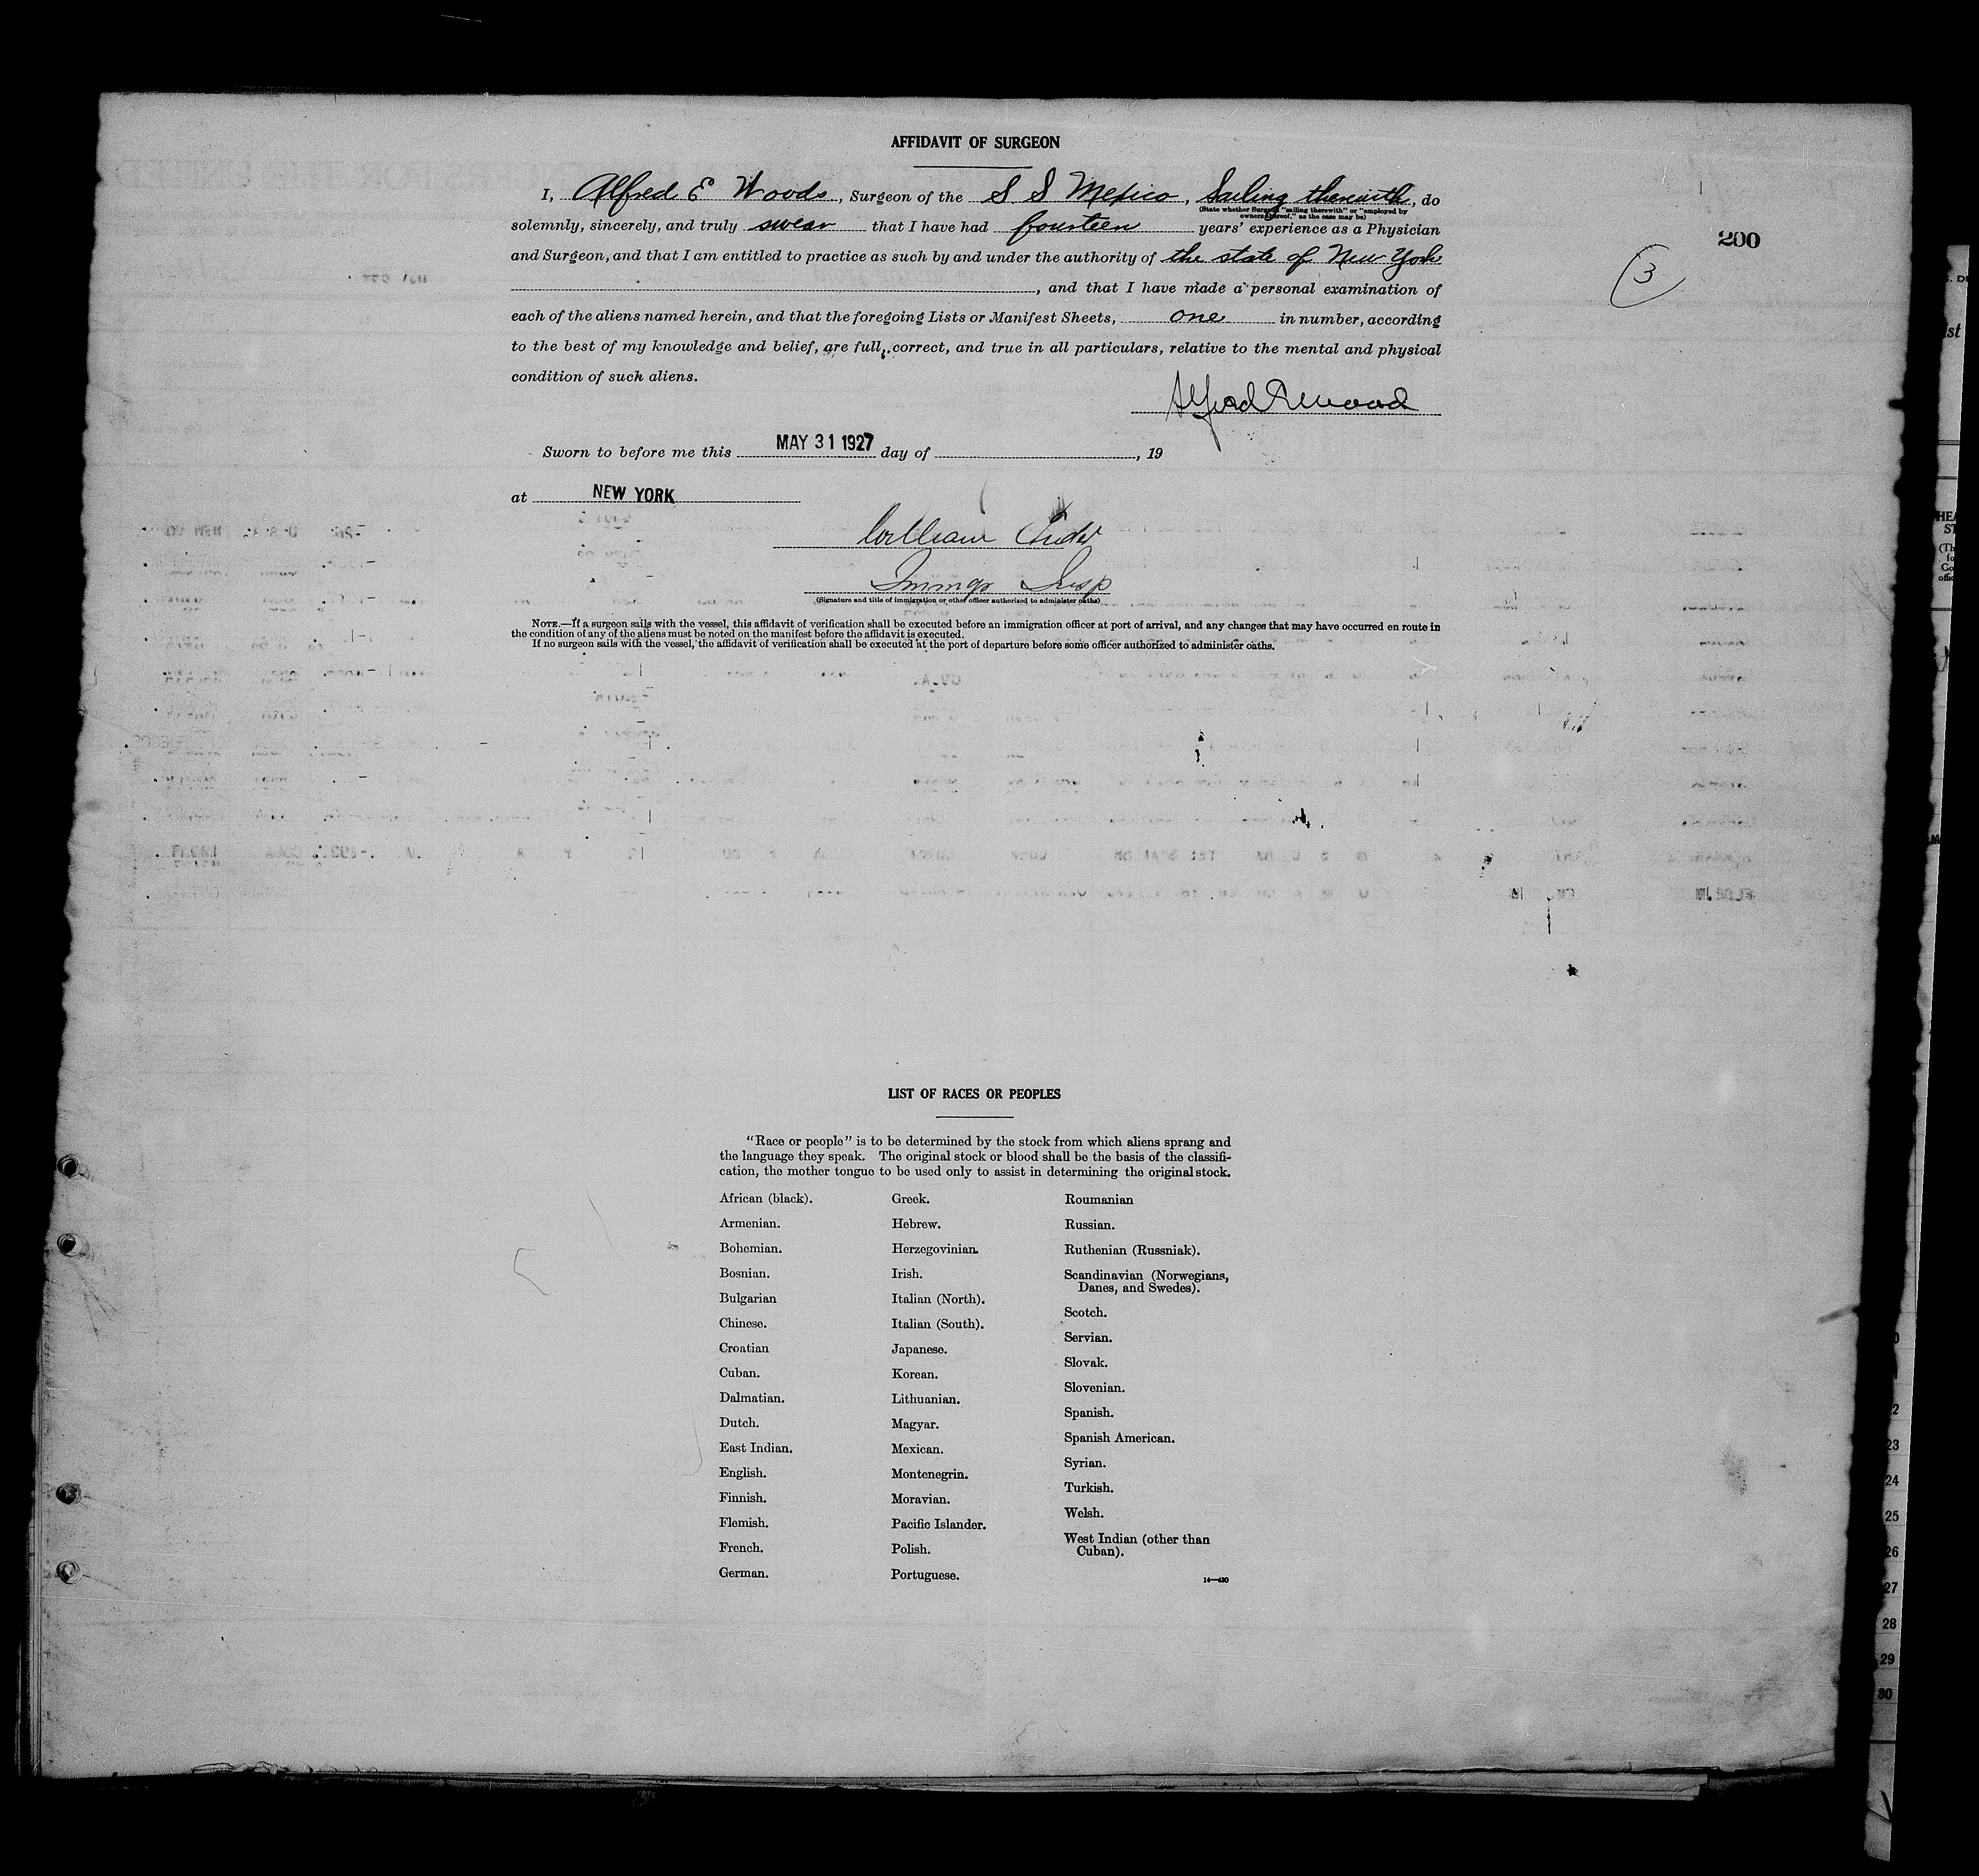 AFFIDAVIT OF SURGEON
I, Alfred E Woods, Surgeon of the S S Mexico, Sailing therewith, do
(State whether Surgeon "sailing therewith" or "employed by
owners thereof," as the case may be)
solemnly, sincerely, and truly swear that I have had fourteen years' experience as a Physician
200
and Surgeon, and that I am entitled to practice as such by and under the authority of the state of New York
3
, and that I have made a personal examination of
each of the aliens named herein, and that the foregoing Lists or Manifest Sheets, one in number, according
to the best of my knowledge and belief, are full, correct, and true in all particulars, relative to the mental and physical
condition of such aliens.
Alfred E Woods
Sworn to before me this MAY 31 1927 day of , 19
at NEW YORK
William
Immgr Insp
(Signature and title of immigration or other officer authorized to administer oaths)
NOTE.—If a surgeon sails with the vessel, this affidavit of verification shall be executed before an immigration officer at port of arrival, and any changes that may have occurred en route in
the condition of any of the aliens must be noted on the manifest before the affidavit is executed.
If no surgeon sails with the vessel, the affidavit of verification shall be executed at the port of departure before some officer authorized to administer oaths.
LIST OF RACES OR PEOPLES
"Race or people" is to be determined by the stock from which aliens sprang and
the language they speak. The original stock or blood shall be the basis of the classifi-
cation, the mother tongue to be used only to assist in determining the original stock.
African (black).
Armenian.
Bohemian.
Bosnian.
Bulgarian
Chinese.
Croatian
Cuban.
Dalmatian.
Dutch.
East Indian.
English.
Finnish.
Flemish.
French.
German.
Greek.
Hebrew.
Herzegovinian.
Irish.
Italian (North).
Italian (South).
Japanese.
Korean.
Lithuanian.
Magyar.
Mexican.
Montenegrin.
Moravian.
Pacific Islander.
Polish.
Portuguese.
Roumanian
Russian.
Ruthenian (Russniak).
Scandinavian (Norwegians,
Danes, and Swedes).
Scotch.
Servian.
Slovak.
Slovenian.
Spanish.
Spanish American.
Syrian.
Turkish.
Welsh.
West Indian (other than
Cuban).
14—430
23
24
25
26
27
28
29
30